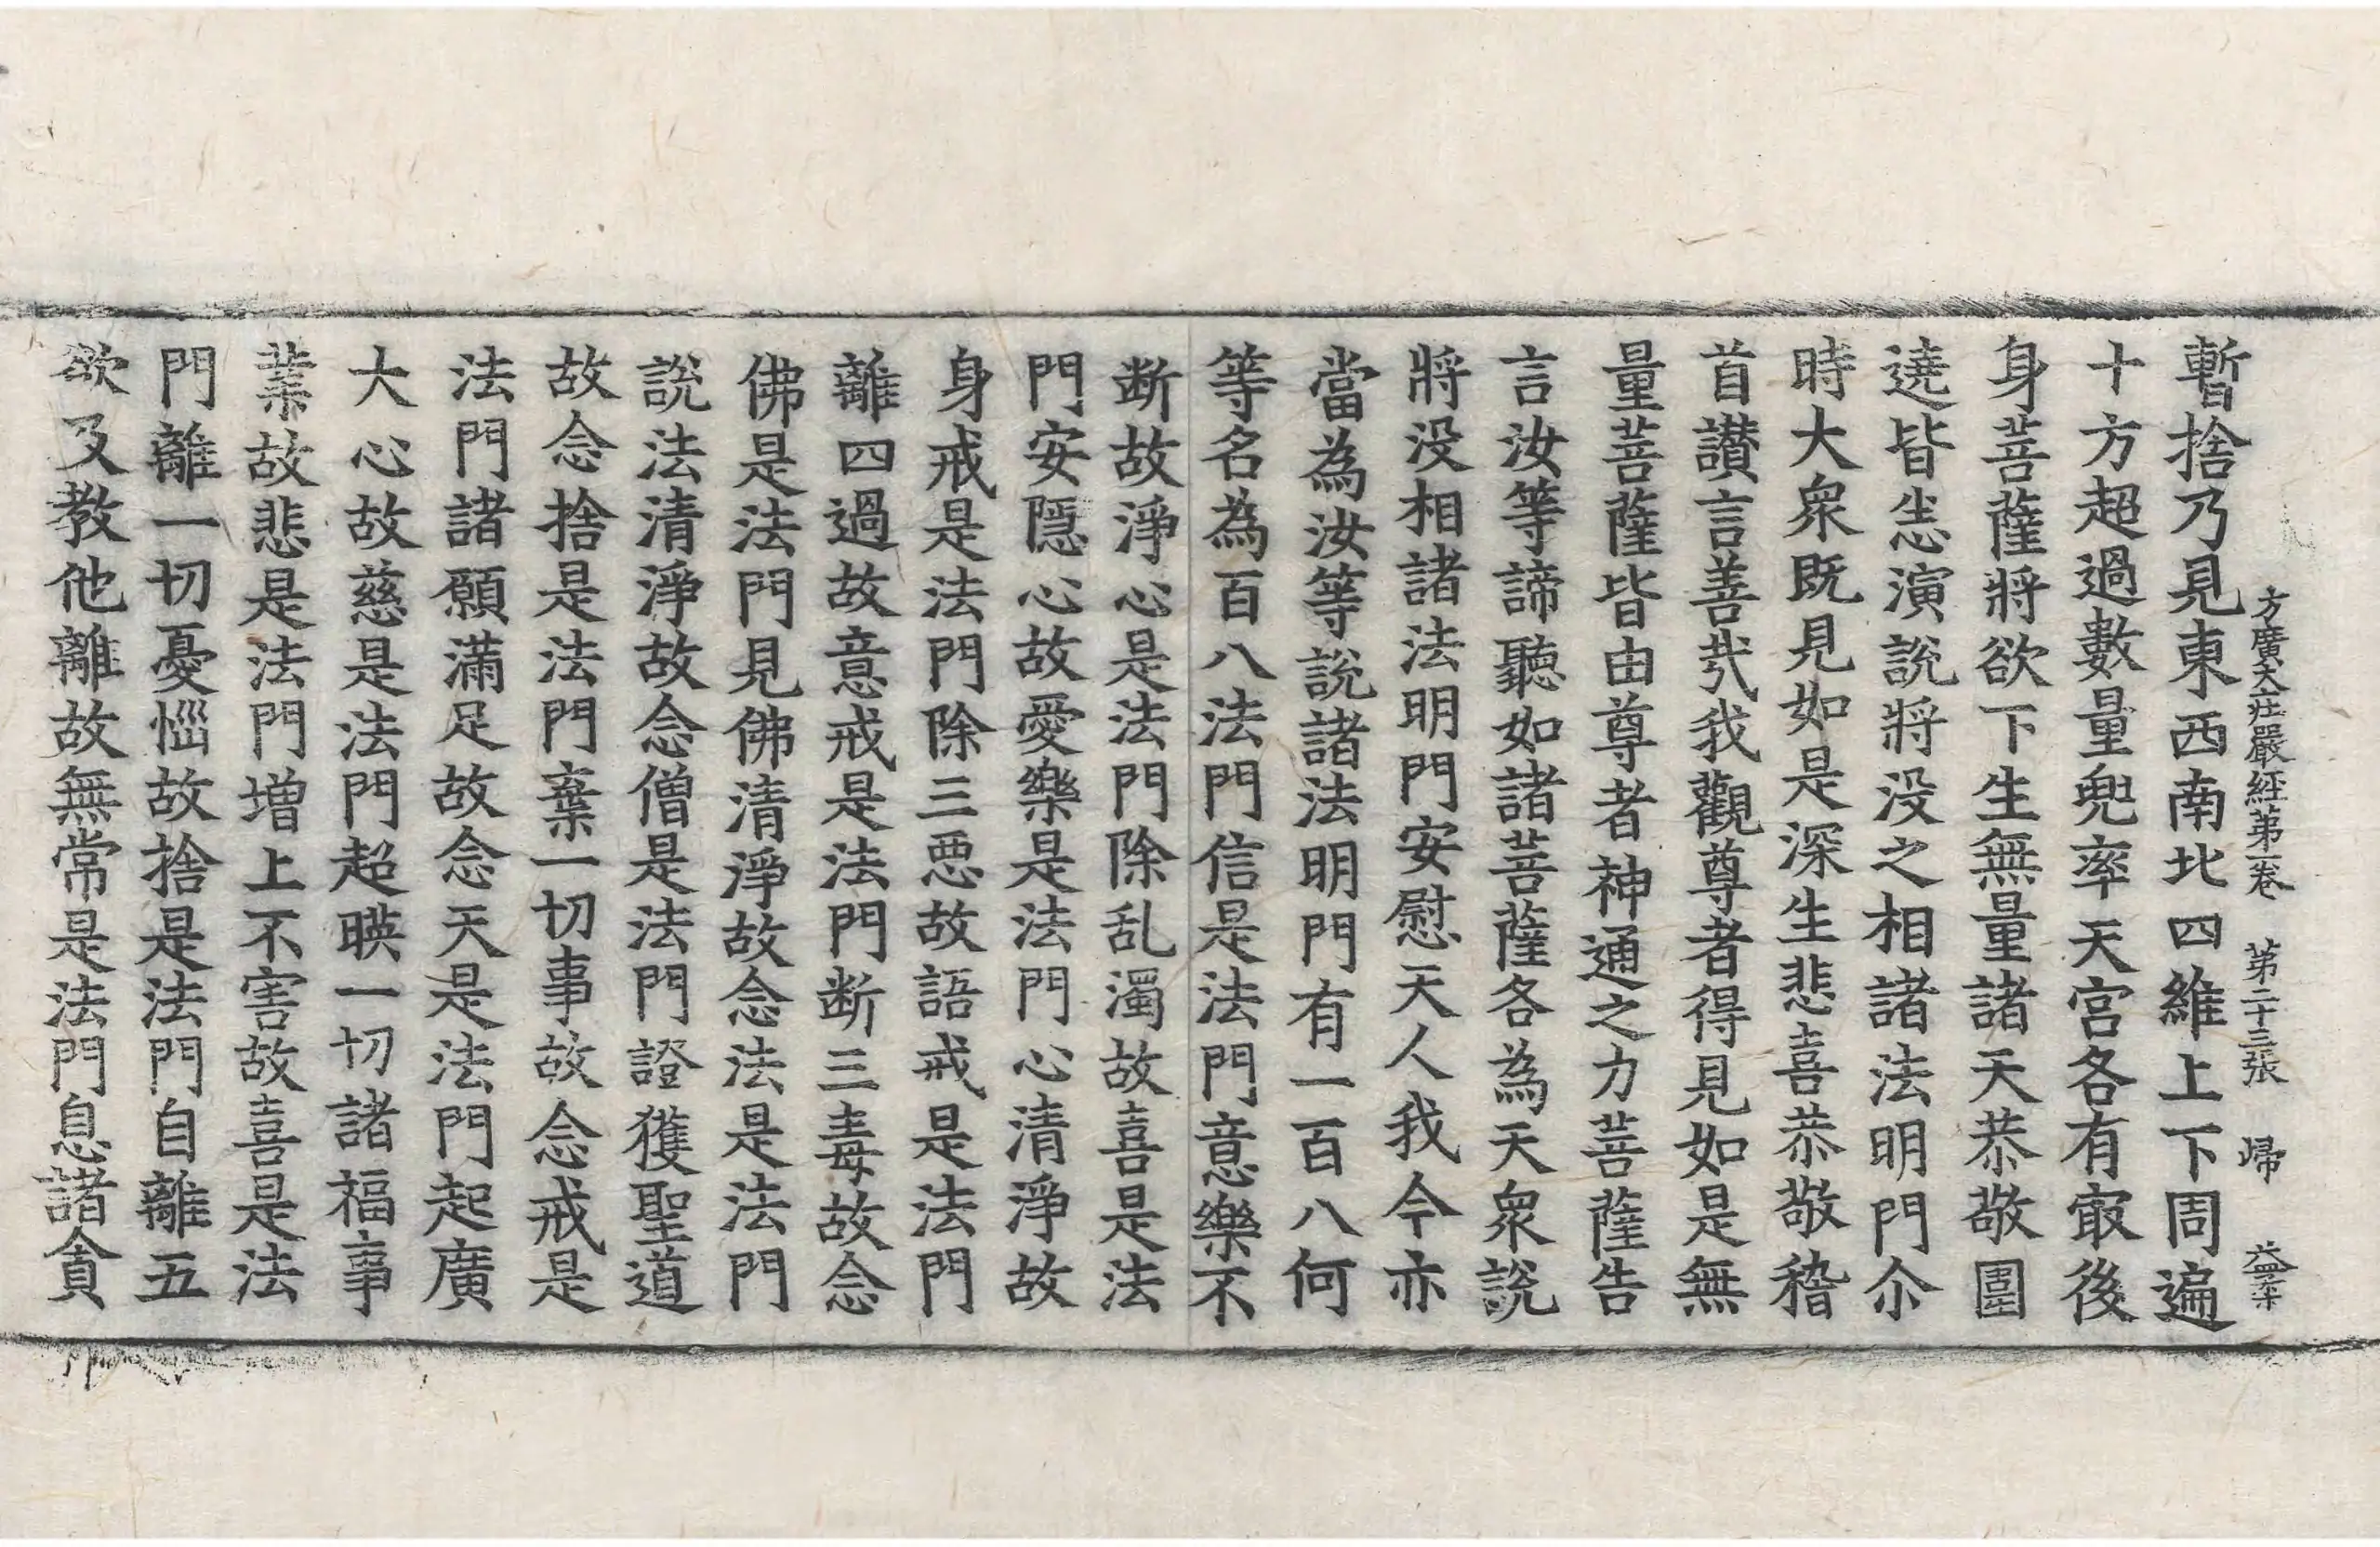 方廣大庄嚴經第一卷 第二十三張 歸
暫捨乃見東西南北四維上下周遍
十方超過數量兜率天宮各有㝡後
身菩薩將欲下生無量諸天恭敬圍
遶皆悉演說將没之相諸法明門尒
時大衆既見如是深生悲喜恭敬稽
首讃言善㢤我觀尊者得見如是無
量菩薩皆由尊者神通之力菩薩告
言汝等諦聽如諸菩薩各為天衆說
將没相諸法明門安慰天人我今亦
當為汝等說諸法明門有一百八何
等名為百八法門信是法門意樂不
断故淨心是法門除乱濁故喜是法
門安隱心故愛樂是法門心清淨故
身戒是法門除三悪故語戒是法門
離四過故意戒是法門断三毒故念
佛是法門見佛清淨故念法是法門
說法清淨故念僧是法門證獲聖道
故念捨是法門棄一切事故念戒是
法門諸願滿足故念天是法門起廣
大心故慈是法門超暎一切諸福事
業故悲是法門増上不害故喜是法
門離一切憂惱故捨是法門自離五
欲及教他離故無常是法門息諸貪